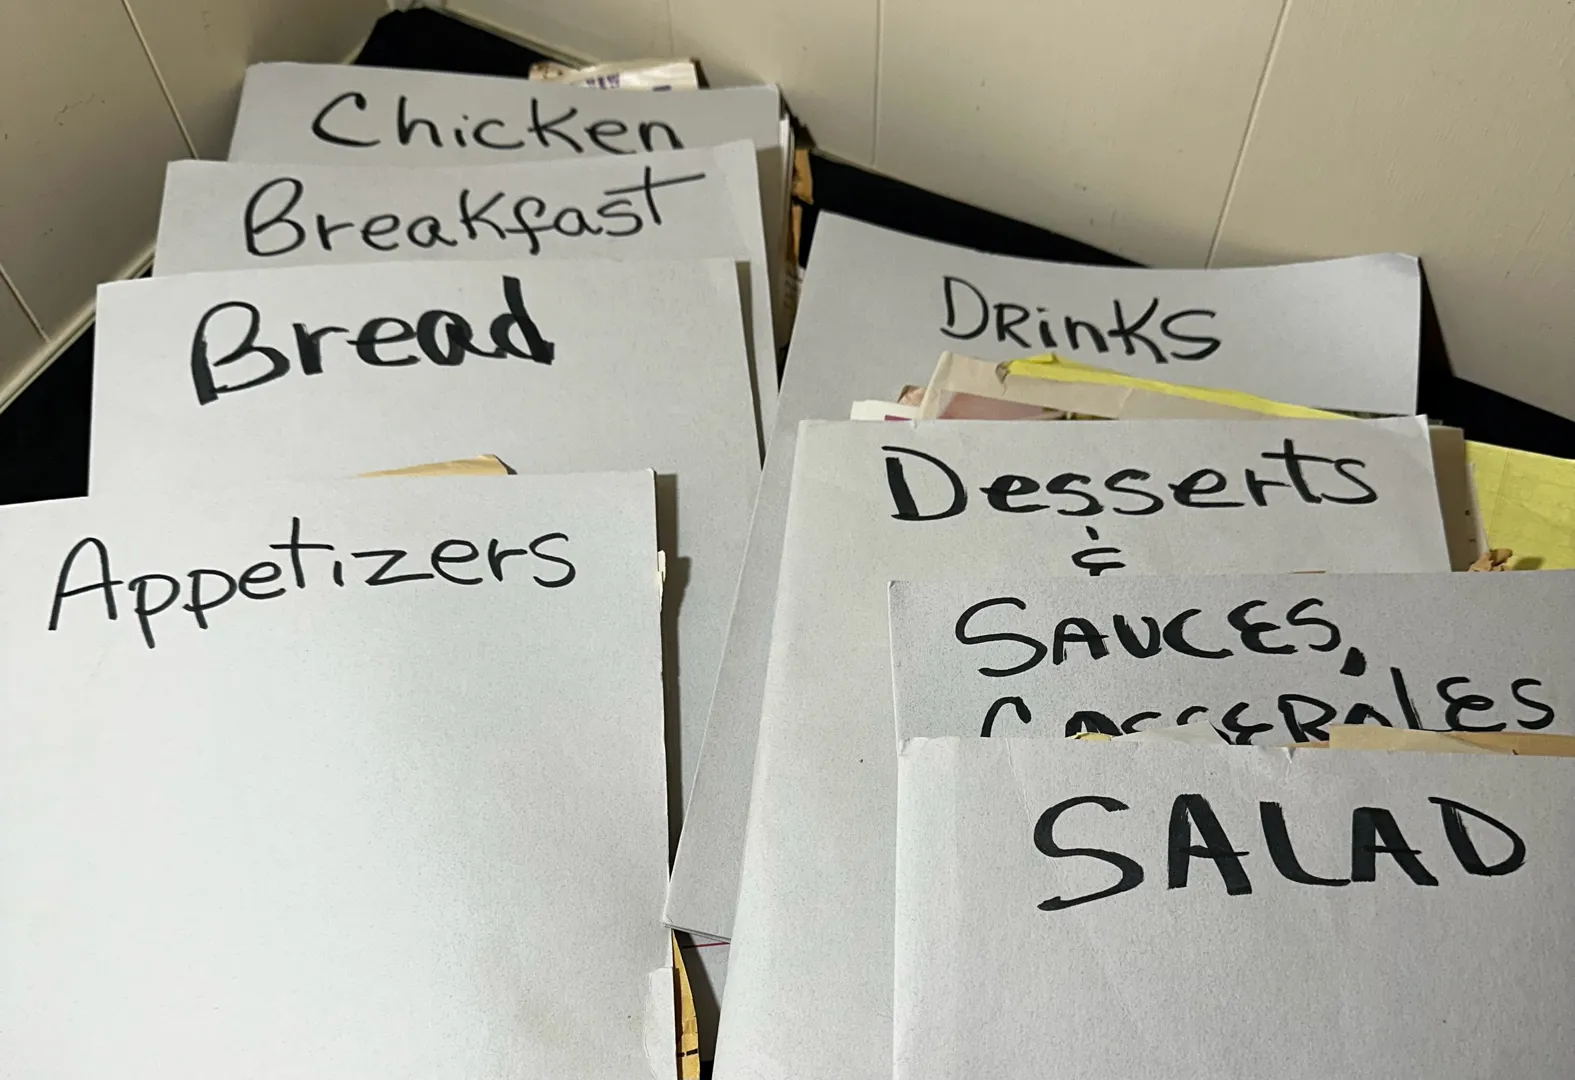 Chicken
Breakfast
Bread
Appetizers
DRinKS
Desserts
&
SAUCES,
CASSEROLES
SALAD